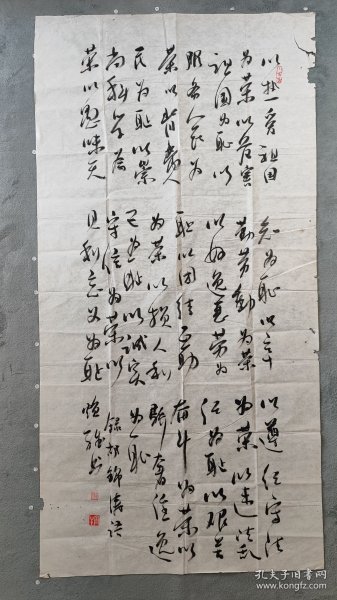 以热爱祖国
为荣以危害
祖国为耻以
服务人民为
荣以背离人
民为耻以崇
尚科学为
荣以愚昧无
知为耻以辛
勤劳动为荣
以好逸恶劳为
耻以团结互助
为荣以损人利
己为耻以诚实
守信为荣以
见利忘义为耻
以遵纪守法
为荣以违法乱
纪为耻以艰苦
奋斗为荣以
骄奢淫逸
为耻
录胡锦涛语
书
孔夫子旧书网
www.kongfz.com